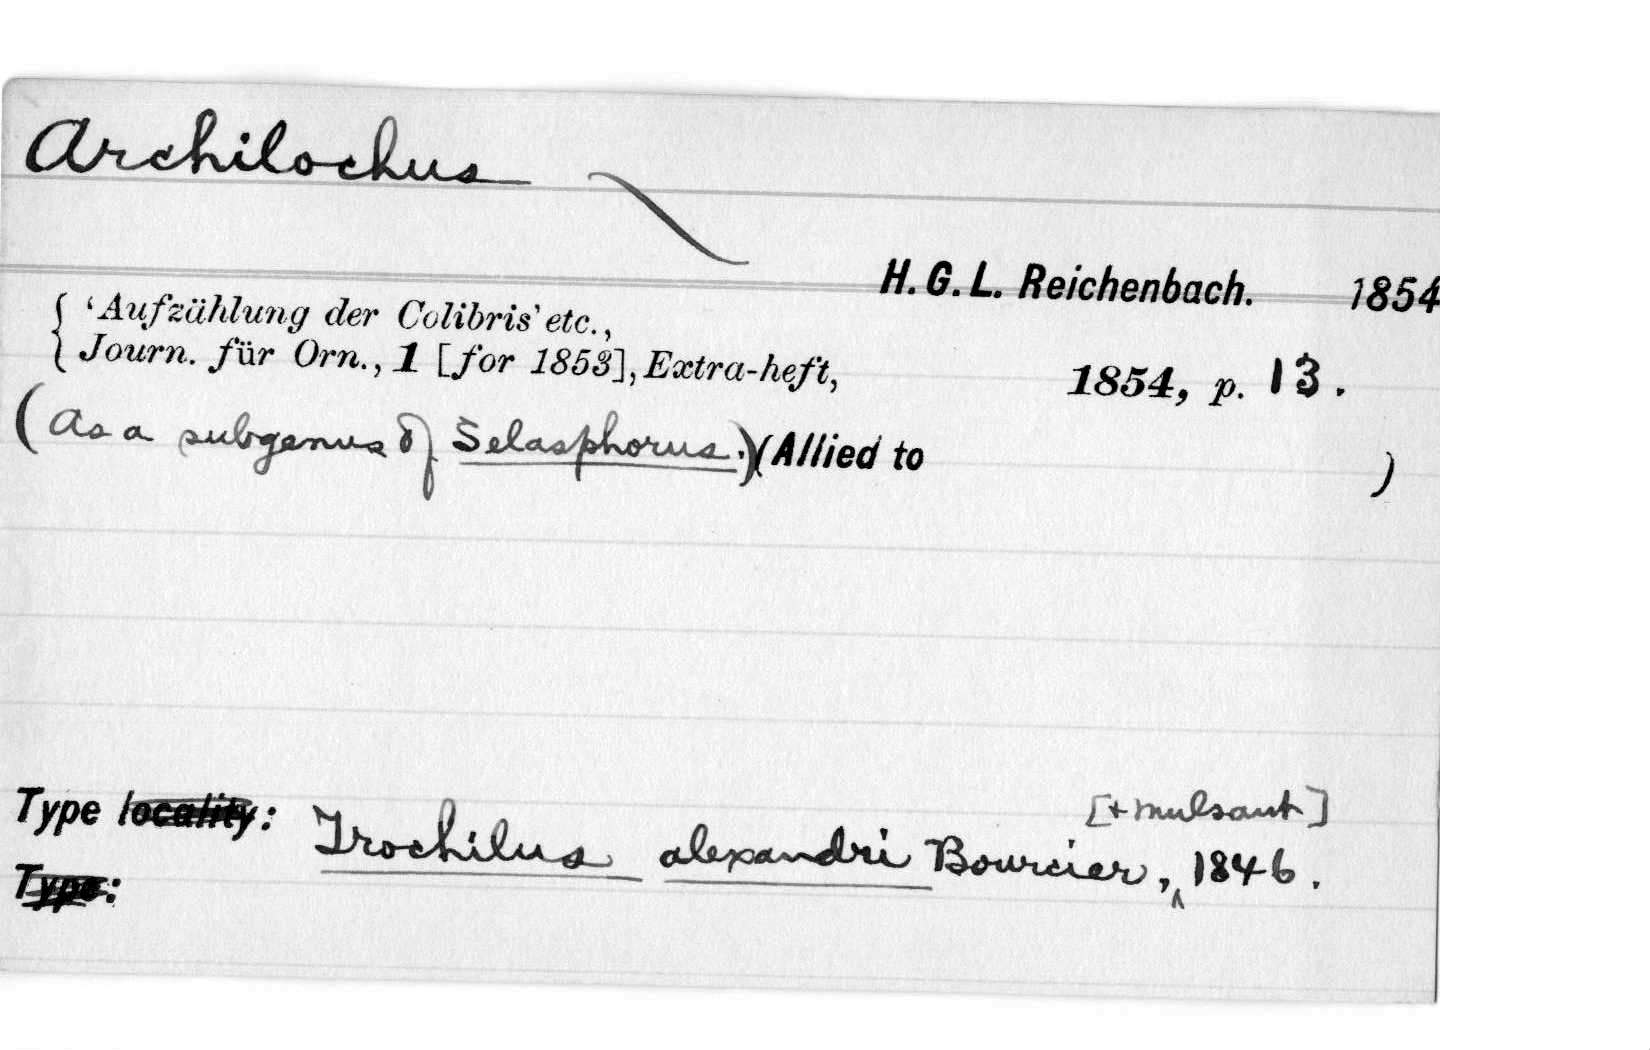 Archilochus
H. G. L. Reichenbach. 1854
'Aufzählung der Colibris' etc.,
Journ. für Orn., 1 [for 1853], Extra-heft, 1854, p. 13.
(As a subgenus of Selasphorus.) (Allied to )
[+ Mulsant]
Type locality: Trochilus alexandri Bourcier, ^ 1846.
Type: